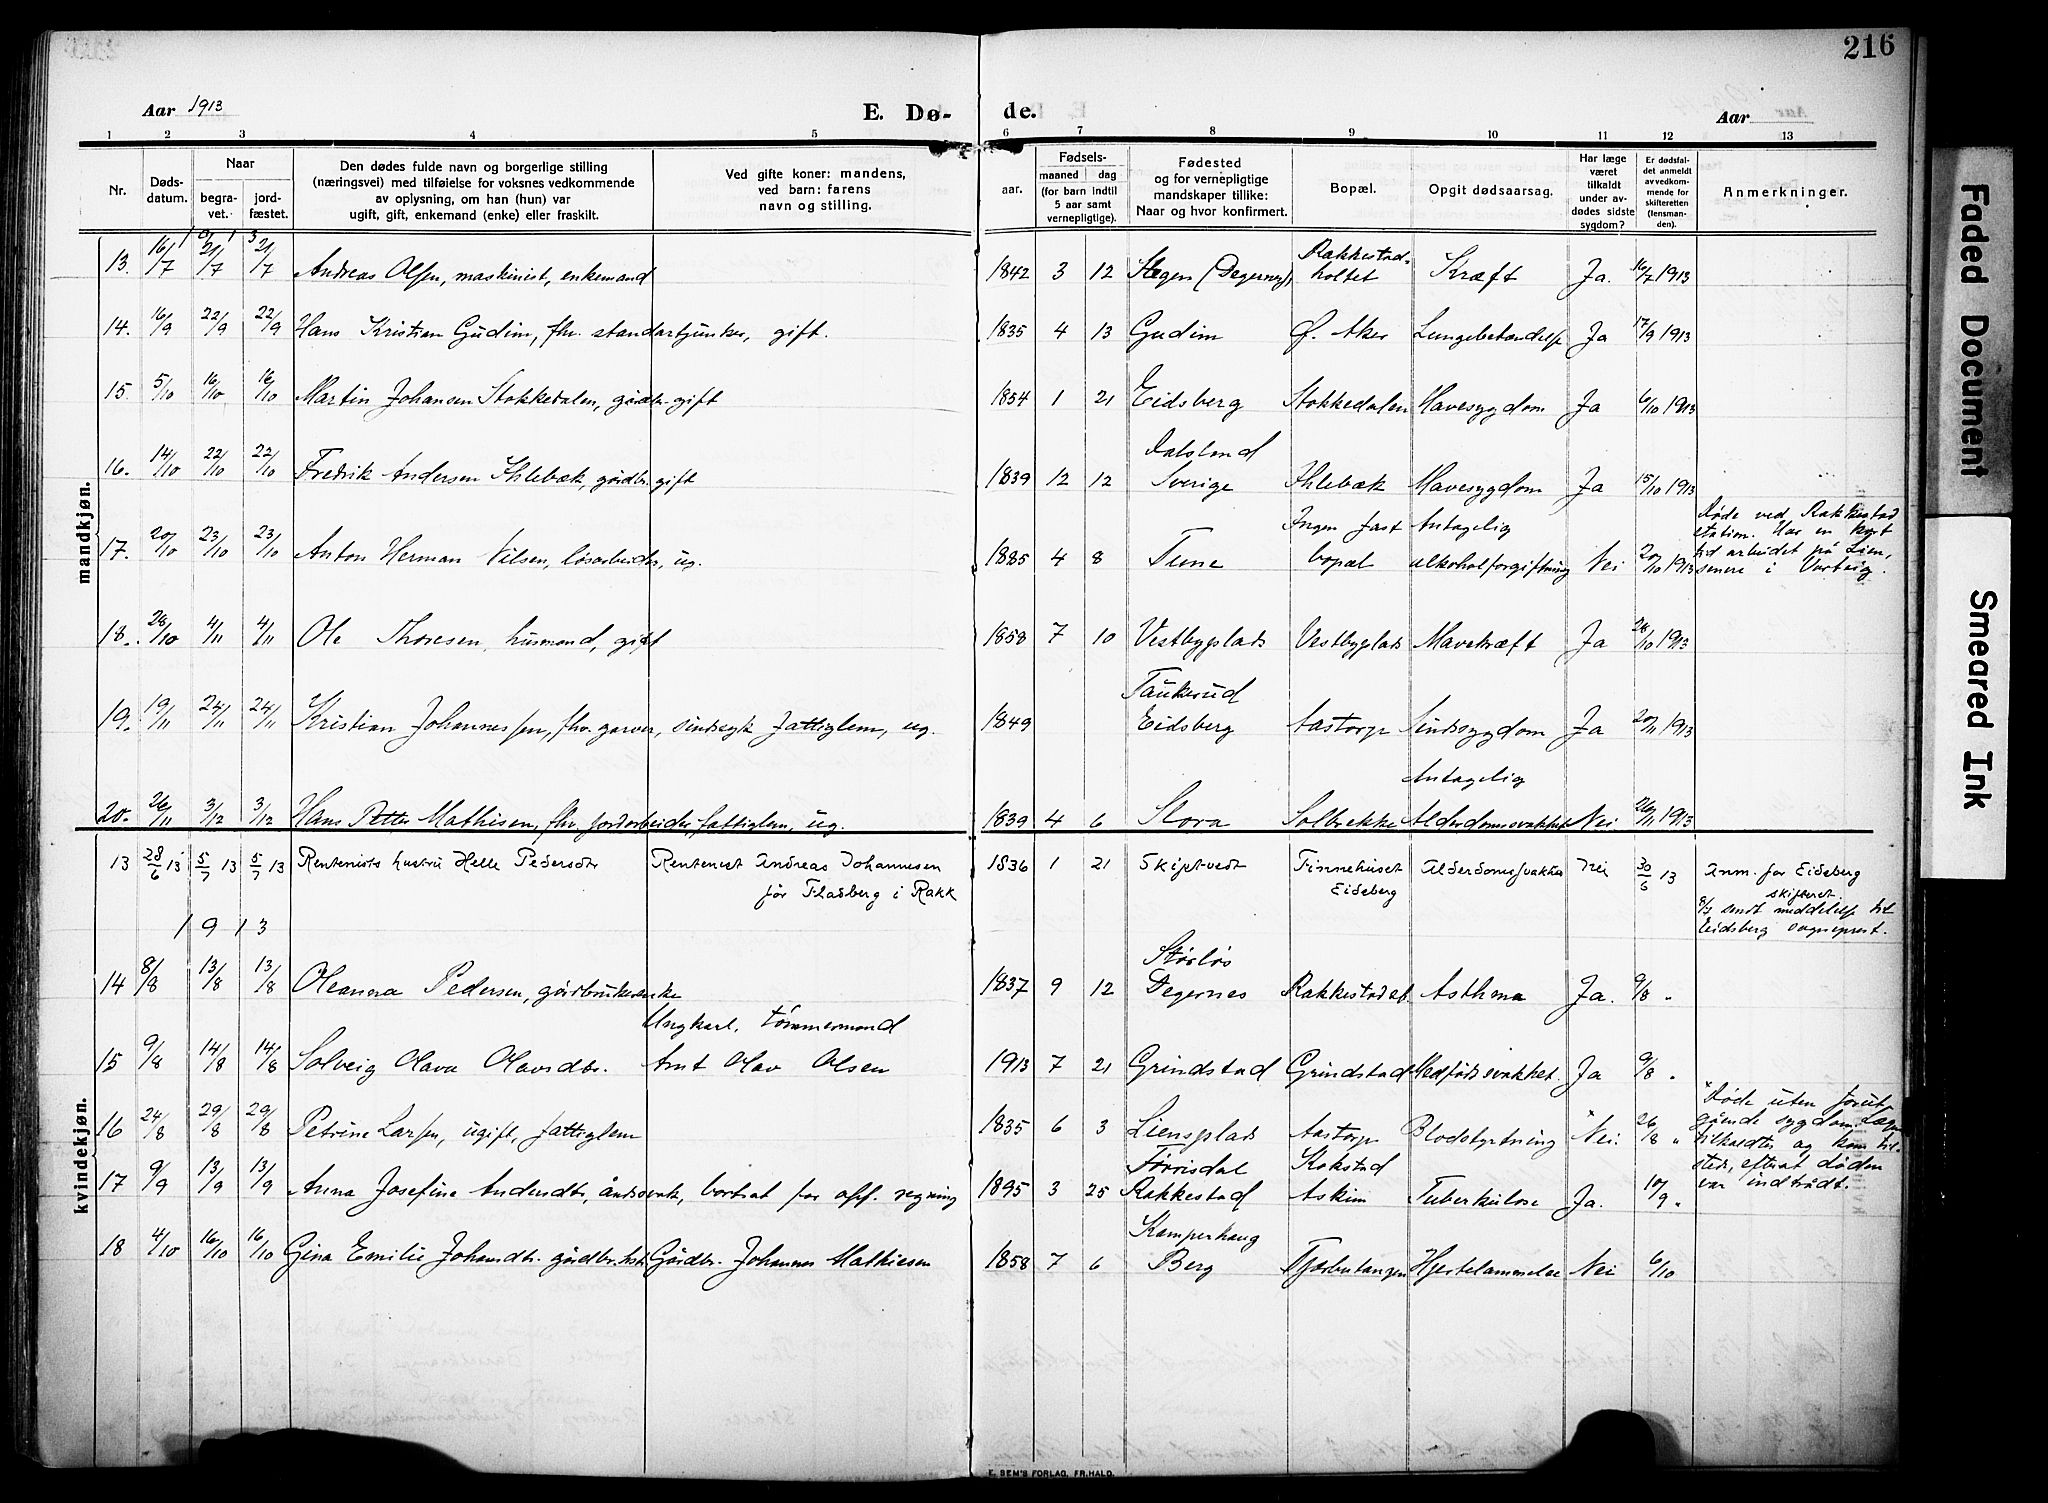 216
Aar 1913
E. Dø-
de.
Aar
1 2 3 4 5 6 7 8 9 10 11 12 13
Nr.
Døds-
datum.
Naar
begra-
vet.
jord-
fæstet.
Den dødes fulde navn og borgerlige stilling
(næringsvei) med tilføielse for voksnes vedkommende
av oplysning, om han (hun) var
ugift, gift, enkemand (enke) eller fraskilt.
Ved gifte koner: mandens,
ved barn: farens
navn og stilling.
Fødsels-
aar.
maaned dag
(for barn indtil
5 aar samt
vernepligtige).
Fødested
og for vernepligtige
mandskaper tillike:
Naar og hvor konfirmert.
Bopæl.
Opgit dødsaarsag.
Har læge
været
tilkaldt
under av-
dødes sidste
sygdom?
Er dødsfal-
det anmeldt
av vedkom-
mende for
skifteretten
(lensman-
den).
Anmerkninger.
mandkjøn.
Rakkestad-
13. 16/7 21/7 21/7 Andreas Olsen, maskinist, enkemand 1842 3 12 (Degernes), holtet Kræft Ja. 16/7 1913
14. 16/9 22/9 22/9 Hans Kristian Gudim, fhv. standartjunker, gift. 1835 4 13 Gudim Ø. Aker Lungebetændelse Ja 17/9 1913
15. 5/10 16/10 16/10 Martin Johansen Stokkedalen, gårdbr. gift 1854 1 21 Eidsberg Stokkedalen Mavesygdom Ja 6/10 1913
Dalsland
16. 14/10 22/10 22/10 Fredrik Andersen Ihlebæk, gårdbr. gift 1839 12 12 Sverige Ihlebæk Mavesygdom Ja 15/10 1913
Ingen fast Antagelig Døde ved Rakkestad
station. Har en kort
17. 20/10 23/10 23/10 Anton Herman Nilsen, løsarbeider, ug. 1885 4 8 Tune bopæl alkoholforgiftning Nei 20/10 1913 tid arbeidet på Lien,
senere i Varteig.
18. 28/10 4/11 4/11 Ole Thoresen, husmand, gift 1858 7 10 Vestbyplads Vestbyplads Mavekræft Ja 28/10 1913
Taukerud
19. 19/11 24/11 24/11 Kristian Johannessen, fhv. garver, sindssyk fattiglem, ug. 1849 Eidsberg Aastorp Sindssygdom Ja 20/11 1913
Antagelig
20. 26/11 3/12 3/12 Hans Petter Mathisen, fhv. jordarbeider fattiglem, ug. 1839 4 6 Slora Solbrekke Alderdomssvakhet Nei 26/11 1913
kvindekjøn.
13 28/6 13 5/7 13 5/7 13 Rentenists hustru Helle Pedersdtr Rentenist Andreas Johannesen 1836 1 21 Skiptvedt Finnehuset Alderdomssvakhet Nei 30/6 13 Anm. for Eidsberg
før Fladberg i Rakk Eidsberg skifteret.
8/7 sendt meddelelse til
1913 Eidsberg sogneprest.
Størløs
14 8/8 13/8 13/8 Oleanna Pedersen, gårdbrukerenke 1837 9 12 Degernes Rakkestadet Asthma Ja. 9/8 "
Ungkarl, tømmermand
15 9/8 14/8 14/8 Solveig Olava Olavsdtr. Arnt Olav Olsen 1913 7 21 Grindstad Grindstad Medfødt svakhet. Ja 9/8 "
" Døde uten forut-
16 24/8 29/8 29/8 Petrine Larsen, ugift, fattiglem 1835 6 3 Liensplads Aastorp Blodstyrtning " Nei. 26/8 " gående sygdom. Læge
tilkaldtes og kom til-
Tørrisdal Kokstad stede, efterat døden
17 9/9 13/9 13/9 Anna Josefine Andersdtr, åndssvak, bortsat for off. regning 1895 3 25 Rakkestad Askim Tuberkulose Ja. 10/9 " var indtrådt.
Kamperhaug
18 4/10 16/10 16/10 Gina Emilie Johansdtr. gårdbr.hst. Gårdbr. Johannes Mathiesen 1858 7 6 Berg Hjertelammelse Nei 6/10
E. SEM'S FORLAG, FR.HALD.
Faded Document
Smeared Ink